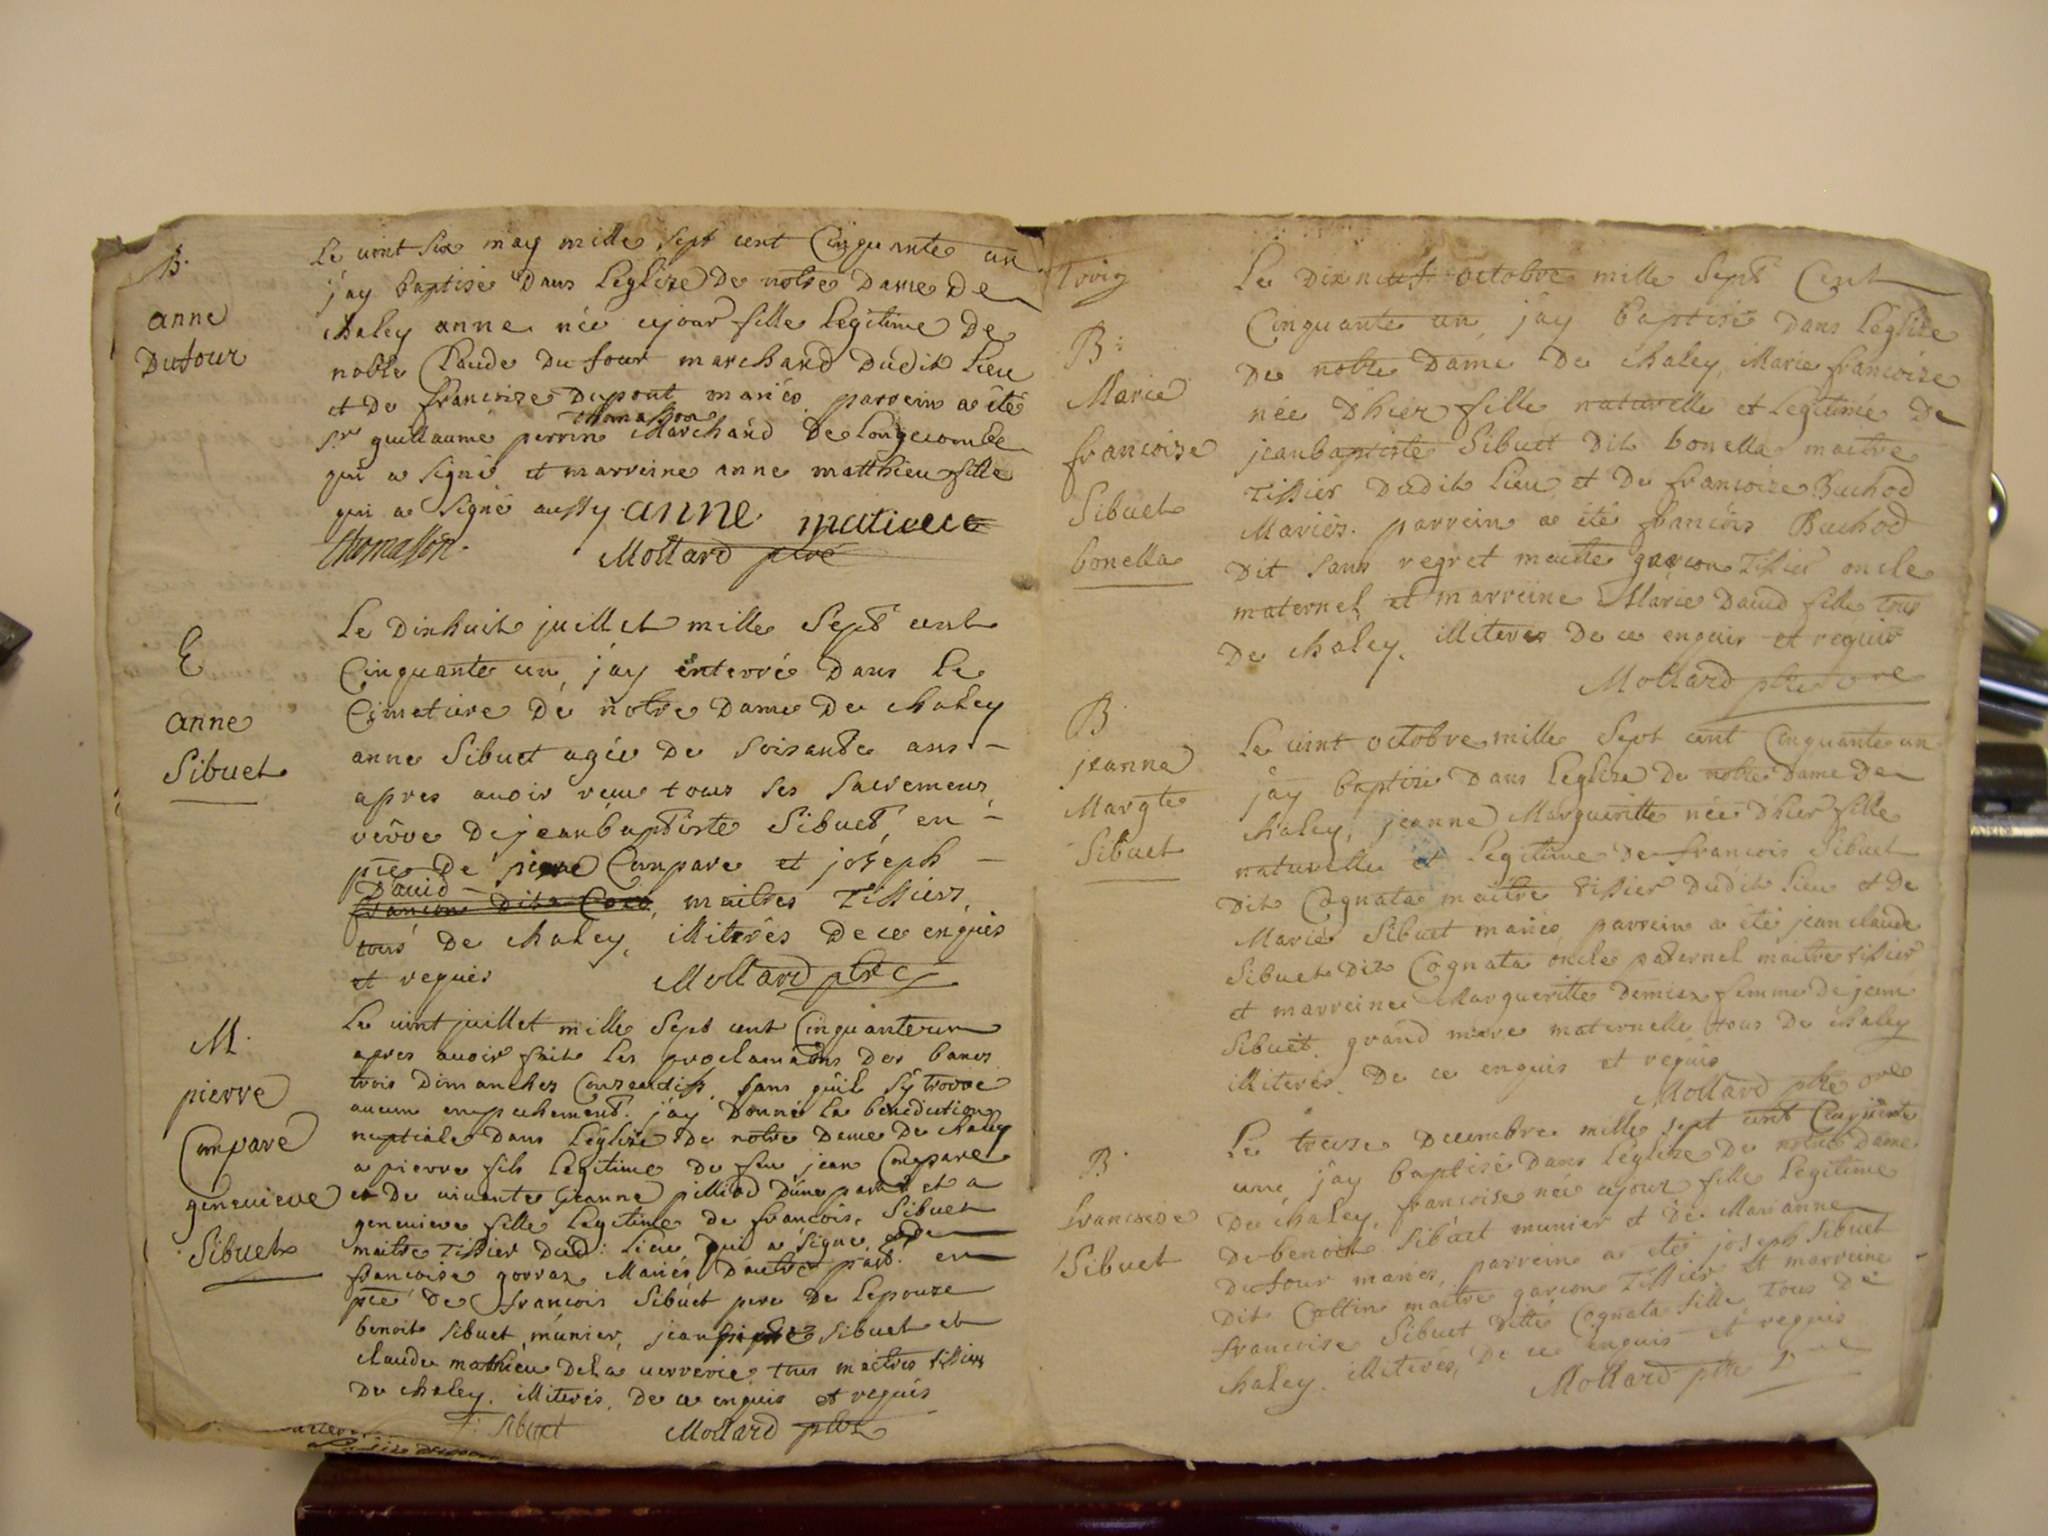 B.
anne
Dufour
Le vint six may mille sept cent Cinquante un
j'ay baptisé Dans L'eglize De notre Dame De
chaley anne née cejour fille Legitime De
noble Claude Dufour marchand Dudit Lieu
et De francoize Dupont mariés parrein a été
thomasson
Sr guillaume perrin Marchand De Longecombe
qui a signé et marreine anne matthieu fille
qui a signé aussy anne matieu
thomasson. Mollard ptre
E
anne
Sibuet
Le Dixhuit juillet mille Sept cent
Cinquante un, j'ay enterré Dans Le
Cimetiere De notre Dame De chaley
anne Sibuet agée De soisante ans -
apres avoir reçu tous ses sacremens
veuve De jeanbaptiste Sibuet, en -
pce De pierre Compare et joseph -
David -
francon dit Coco, maitres Tissiers,
tous De chaley, illiterés De ce enquis
et requis Mollard ptre
M.
pierre
Compare
genevieve
Sibuet
Le vint juillet mille Sept cent Cinquante un
apres avoir fait Les proclamaons des bancs
trois Dimanches Consecutifs, sans quil s'y trouve
aucun empechement. j'ay Donné La benediction
nuptiale Dans Leglize De notre Dame De chaley
a pierre fils Legitime De feu jean Compare
et De vivante jeanne pilliod D'une part et a
genevieve fille Legitime De francois Sibuet
maitre Tissier Dud: Lieu, qui a signé, et De
francoise gorraz Mariés D'autre part. en
pce De francois Sibuet pere De L'epouze
benoit Sibuet munier, jean Sibuet et
claude mathieu De La verrerie tous maitres tissiers
De chaley. illiterés, De ce enquis et requis
f. Sibuet Mollard ptre
Troig
B:
Marie
francoize
Sibuet
bonella
Le Dix neuf octobre mille Sept Cent
Cinquante un j'ay baptisé dans L'eglize
De notre Dame De chaley, Marie francoize
née D'hier fille naturelle et Legitime De
jeanbaptiste Sibuet Dit bonella maitre
Tissier Dudit Lieu et De francoize Buchod
Mariés. parrein a été francois Buchod
Dit sans regret maitre garcon Tissier oncle
maternel et marreine Marie David fille tous
De chaley, illiterés De ce enquis et requis
Mollard ptre
B.
jeanne
Margte
Sibuet
Le vint octobre mille Sept cent Cinquante un
j'ay baptisé Dans Leglize De notre Dame De
chaley, jeanne Margueritte née D'hier fille
naturelle et Legitime De francois Sibuet
Dit Cognata maitre tissier Dudit Lieu et De
Marie Sibuet mariés, parrein a été jean claude
Sibuet Dit Cognata oncle paternel maitre tissier
et marreine Margueritte Demiez femme De jean
Sibuet, grand mere maternelle tous De chaley
illiterés. De ce enquis et requis
Mollard ptre
B.
francoise
Sibuet
Le treize Decembre mille sept cent Cinquante
un, j'ay baptisé Dans Leglize De notre Dame
De chaley, francoise née cejour fille Legitime
De benoit Sibuet munier et De Marianne
Dufour mariés, parrein a été joseph Sibuet
Dit Cattin maitre garcon Tissier et marreine
francoise Sibuet Ditte Cognata fille tous De
chaley. illiterés, De ce enquis et requis
Mollard ptre